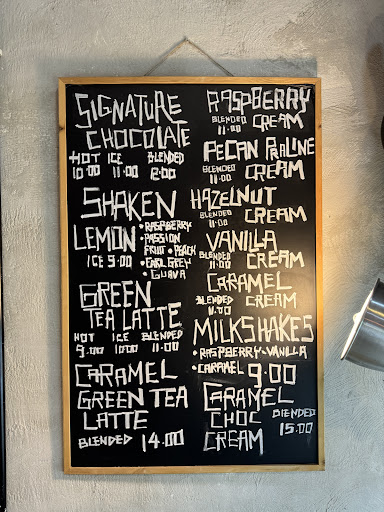 SIGNATURE
CHOCOLATE
HOT ICE BLENDED
10.00 11.00 12.00
SHAKEN
LEMON
ICE 9.00
• RASPBERRY
• PASSION
FRUIT • PEACH
• EARL GREY
• GUAVA
GREEN
TEA LATTE
HOT ICE BLENDED
9.00 10.00 11.00
CARAMEL
GREEN TEA
LATTE
BLENDED 14.00
RASPBERRY
BLENDED CREAM
11.00
PECAN PRALINE
BLENDED CREAM
11.00
HAZELNUT
BLENDED CREAM
11.00
VANILLA
BLENDED CREAM
11.00
CARAMEL
BLENDED CREAM
11.00
MILKSHAKES
• RASPBERRY • VANILLA
• CARAMEL 9.00
CARAMEL
CHOC BLENDED
CREAM 15.00